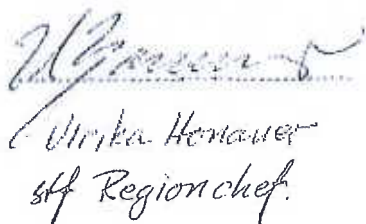 Ulrika Honauer
stf Regionchef.